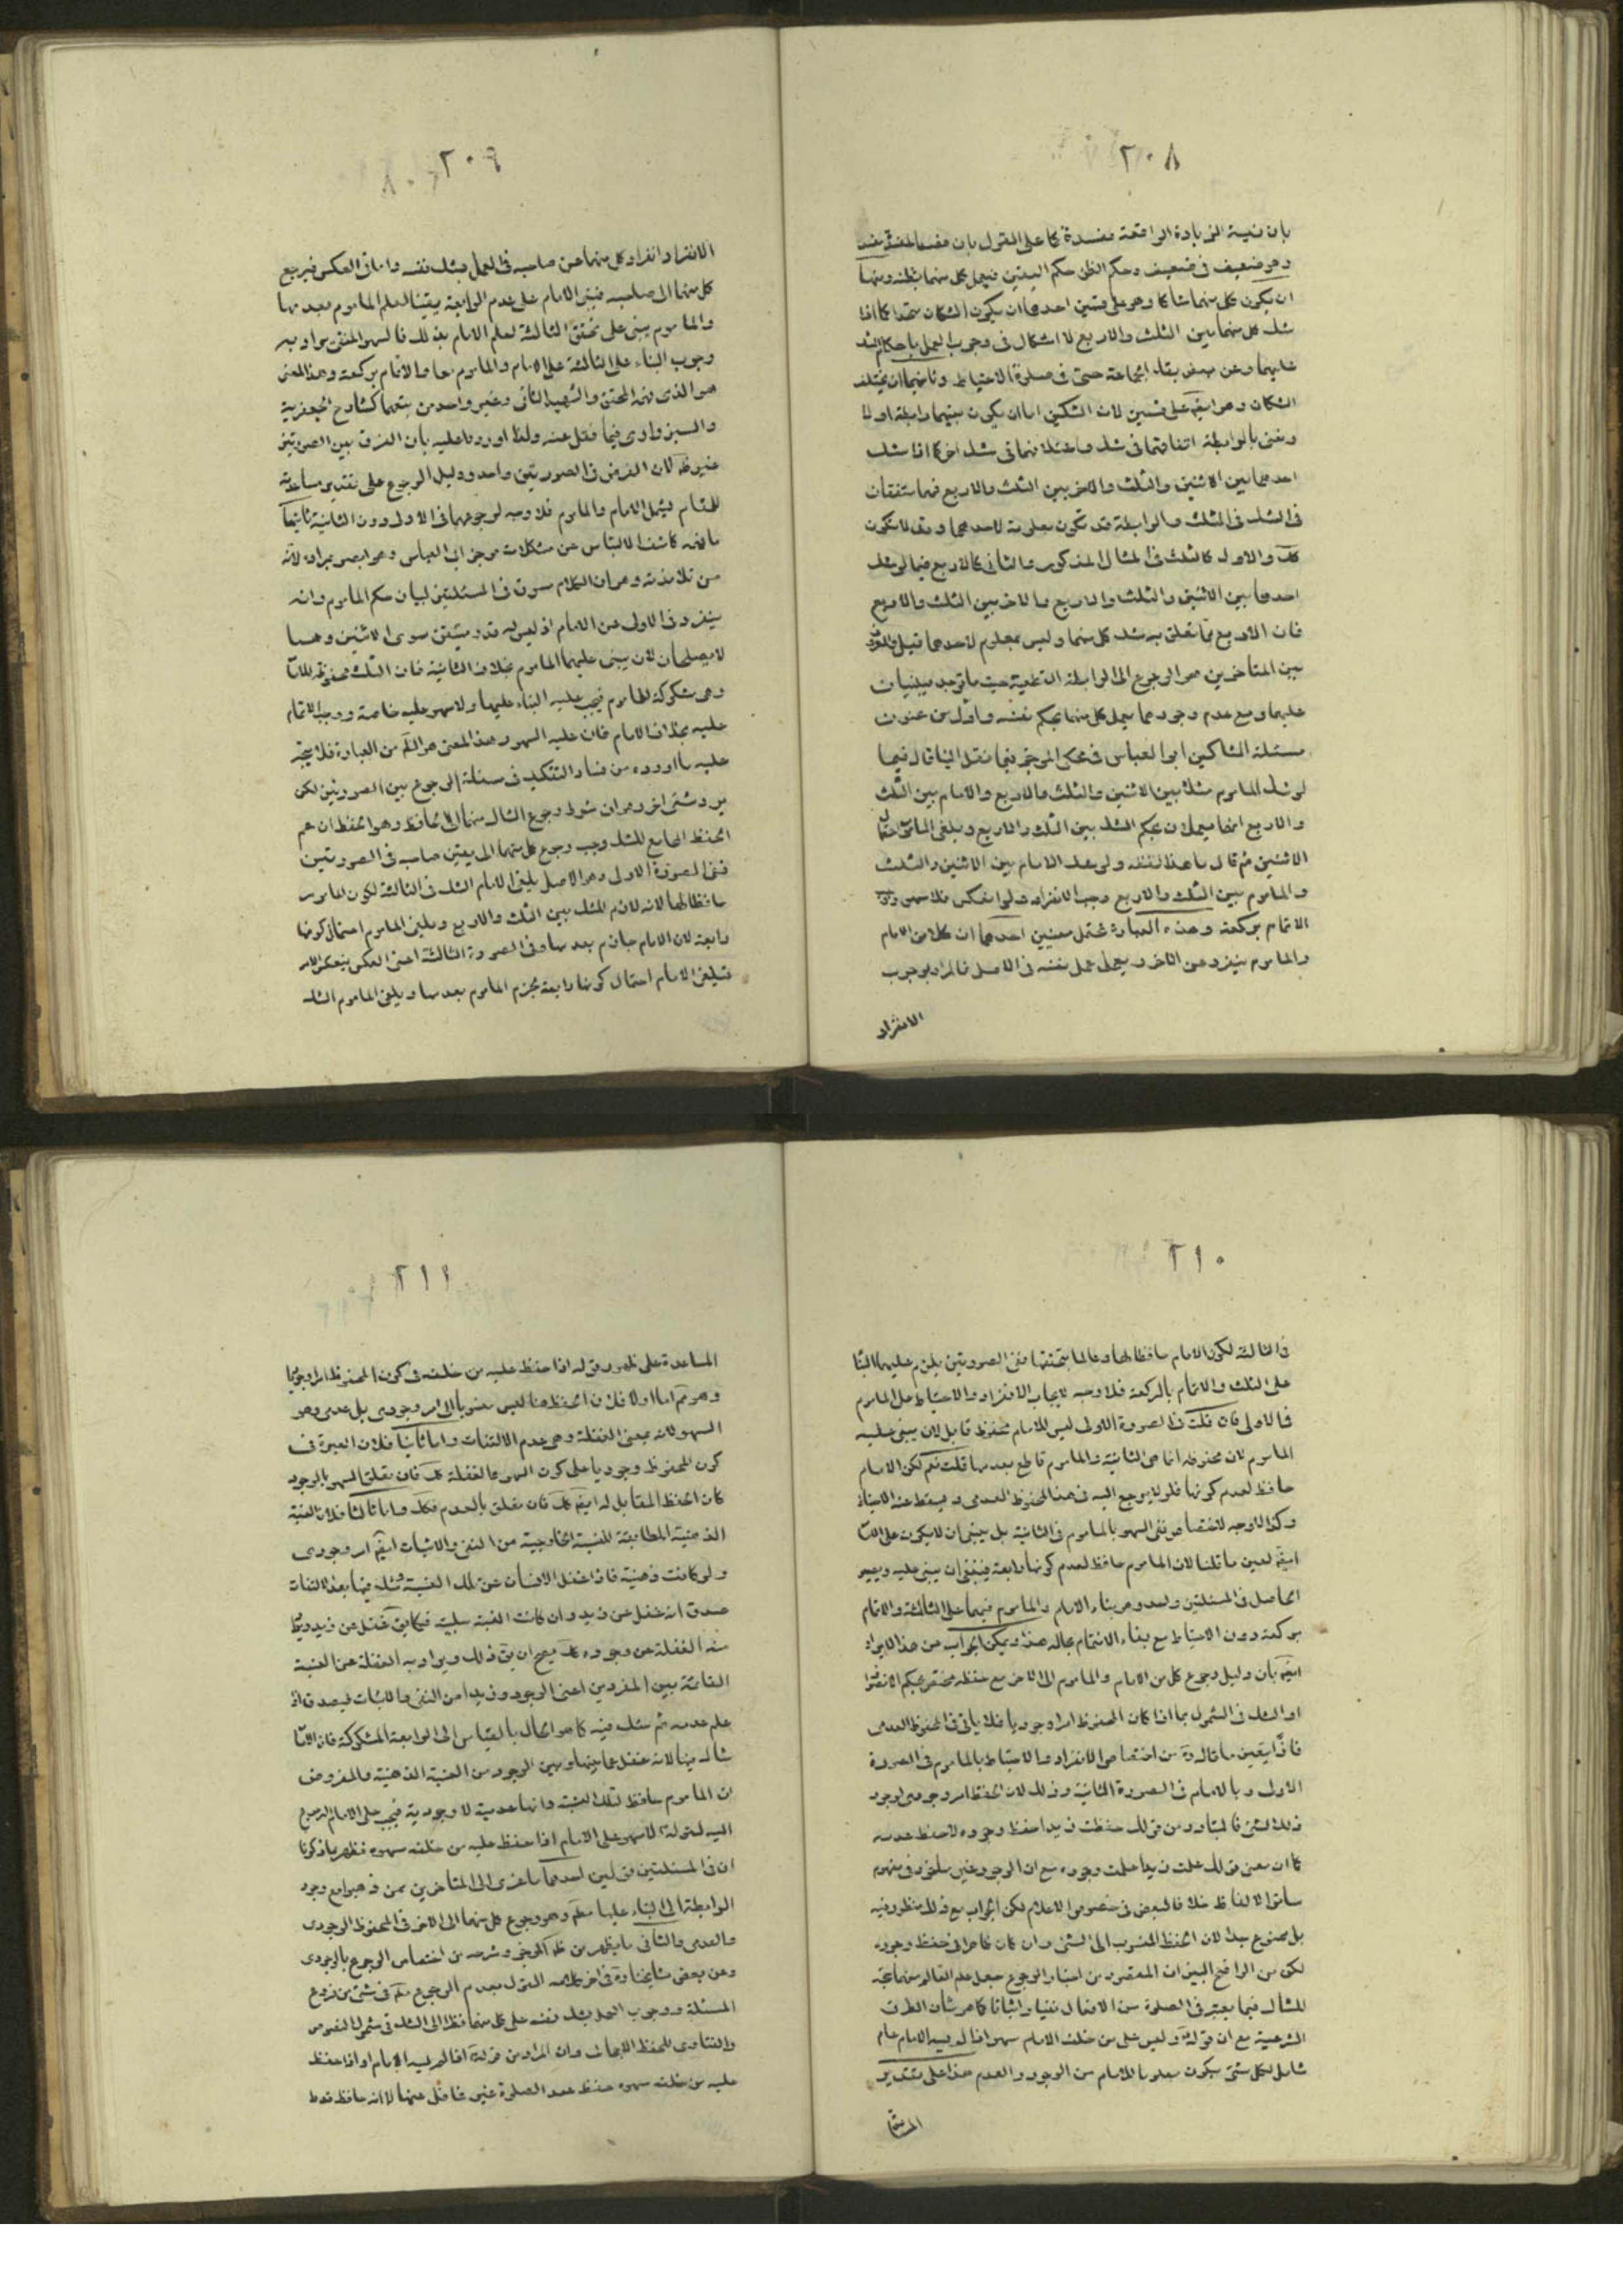 ٢٠٨
بان نية الزيادة الواقعة مفسدة كما على القول بان
وهو ضعيف في ضعيف وحكم الظن حكم اليقين فيعمل كل منهما بظنه ومنها
ان يكون كل منهما شاكا وهو على قسمين احدهما ان يكون الشكان متحدا كما اذا
شك كل منهما بين الثلث والاربع لا اشكال في وجوب العمل باحكام الشك
عليهما وعن بعض بقاء الجماعة حتى في صلوة الاحتياط وثانيهما ان يختلف
الشكان وهو ايضا على قسمين لان الشكين اما ان يكون بينهما رابطة او لا
ونعني بالرابطة اتفاقهما في شك واختلافهما في شك اخر كما اذا شك
احدهما بين الاثنين والثلث والاخر بين الثلث والاربع فهما متفقان
في الشك في الثلث والرابطة قد تكون معلومة لاحدهما وقد لا تكون
كك والاول كالثلث في المثال المذكور والثاني كالاربع فيما لو شك
احدهما بين الاثنين والثلث والاربع والاخر بين الثلث والاربع
فان الاربع مما تعلق به شك كل منهما وليس بمعلوم لاحدهما قيل
بين المتاخرين هو الرجوع الى الرابطة القطعية حيث ما توجد فيبنيان
عليها ومع عدم وجودهما يعمل كل منهما بحكم نفسه واول من عنون
مسئلة الشاكين ابو العباس في محكى الموجز فيما نقل الينا قال فيما
لو شك الماموم شكا بين الاثنين والثلث والاربع والامام بين الثلث
والاربع انهما يعملان بحكم الشك بين الثلث والاربع ويلغى الماموم احتمال
الاثنين ثم قال ما هذا لفظه ولو شك الامام بين الاثنين والثلث
والماموم بين الثلث والاربع وجب الانفراد ولو انعكس فلا سهو ووجب
الاتمام بركعة وهذه العبارة تحتمل معنيين احدهما ان كلا من الامام
والماموم ينفرد عن الاخر ويعمل عمل نفسه في الاصل فالمراد بوجوب
الانفراد
٢٠٩
الانفراد انفراد كل منهما عن صاحبه في العمل بشك نفسه واما في العكس فيرجع
كل منهما الى صاحبه فيبنى الامام على عدم الرابعة يقينا لعلم الماموم بعدمها
والماموم يبنى على تحقق الثالثة لعلم الامام بذلك فالسهو المنفى يراد به
وجوب البناء على الثالثة على الامام والماموم معا والاتمام بركعة وهذا المعنى
هو الذي فهمه المحقق والشهيد الثاني وغير واحد ممن تبعهما كشارح الجعفرية
والسبزواري فيما نقل عنه ولذا اوردوا عليه بأن الفرق بين الصورتين
غير ظاهر لان الفرض في الصورتين واحد ودليل الرجوع على تقدير مساعدته
للمقام يشمل الامام والماموم فلا وجه لرجوعهما في الاولى دون الثانية ثانيهما
ما فهمه كاشف الالتباس عن مشكلات موجز ابي العباس وهو ابصر بمراده لانه
من تلامذته وهو ان الكلام مسوق في المسئلتين لبيان حكم الماموم وانه
ينفرد في الاولى عن الامام اذ ليس له قدر متيقن سوى الاثنين وهما
لا يصلحان لان يبنى عليهما الماموم بخلاف الثانية فان الثلث محفوظة للامام
وهي مشكوكة للماموم فيجب عليه البناء عليها ولا سهو عليه خاصة ووجب الاتمام
عليه بخلاف الامام فان عليه السهو وهذا المعنى هو الظاهر من العبارة فلا يتجه
عليه ما اوردوه من فساد التفكيك في مسئلة الرجوع بين الصورتين لكن
يرد شئ اخر وهو ان شرط رجوع الشاك منهما الى الحافظ وهو الحفظ ان هم
الحفظ الجامع للشك وجب رجوع كل منهما الى يقين صاحبه في الصورتين
ففي الصورة الاولى وهو الاصل يلغى الامام الشك في الثالثة لكون الماموم
حافظا لها لانه لازم للشك بين الثلث والاربع ويلغى الماموم احتمال كونها
رابعة لان الامام جازم بعدمها وفي الصورة الثالثة اعنى العكس ينعكس الامر
فيلغى الامام احتمال كونها رابعة لجزم الماموم بعدمها ويلغى الماموم الشك
٢١٠
في الثالثة لكون الامام حافظا لها وعالما بتحققها ففى الصورتين يلزم عليهما البناء
على الثلث والاتمام بالركعة فلا وجه لايجاب الانفراد والاحتياط على الماموم
في الاولى فان قلت في الصورة الاولى ليس للامام محفوظ قابل لان يبنى عليه
الماموم لان محفوظه انما هي الثانية والماموم قاطع بعدمها قلت نعم لكن الامام
حافظ لعدم كونها فلم لا يرجع اليه في هذا المحفوظ العدمى ويسقط عنه الاحتياط
وكذا لا وجه لاختصاص نفى السهو بالماموم في الثانية بل ينبغى ان لا يكون على الامام
ايضا لعين ما قلنا لان الماموم حافظ لعدم كونها رابعة فينبغى ان يبنى عليه ويصير
الحاصل في المسئلتين واحد وهو بناء الامام والماموم فيهما على الثالثة والاتمام
بركعة دون الاحتياط مع بقاء الائتمام بحاله هذا ويمكن الجواب عن هذا الايراد
ايضا بأن دليل رجوع كل من الامام والماموم الى الاخر مع حفظه مختص بحكم الانصراف
او الشك في الشمول بما اذا كان المحفوظ امرا وجوديا فلا يأتى في المحفوظ العدمى
فاذا يتعين ما قاله من اختصاص الانفراد والاحتياط بالماموم في الصورة
الاولى وبالامام في الصورة الثانية وذلك لان الحفظ امر وجودى لوجود
ذلك الشئ فالمتبادر من قولك حفظت زيدا حفظ وجوده لا حفظ عدمه
كما ان معنى قولك علمت زيدا علمت وجوده مع ان الوجود غير ماخوذ في مفهوم
سائر الالفاظ خلافا لبعض في خصوص الاعلام لكن الجواب مع ذلك منظور فيه
بل ممنوع جدا لان الحفظ المنسوب الى الشئ وان كان ظاهرا في حفظ وجوده
لكن من الواضح البين ان المقصود من اعتبار الرجوع جعل علم العالم منهما حجة
للشاك فيما يعتبر في الصلوة من الافعال نفيا واثباتا كما هو شأن الطرق
الشرعية مع ان قوله وليس على من خلف الامام سهو اذا لم يسه الامام عام
شامل لكل شئ يكون معلوما للامام من الوجود والعدم هذا على تقدير
٢١١
المساعدة على ظهور قوله اذا حفظ عليه من خلفه في كون المحفوظ امرا وجوديا
وهو مم اما اولا فلان الحفظ هنا ليس منسوبا الى امر وجودى بل عدمى وهو
السهو لانه بمعنى الغفلة وهي عدم الالتفات واما ثانيا فلان العبرة في
كون المحفوظ وجوديا على كون السهو والغفلة كك فان تعلق السهو بالوجود
كان الحفظ المقابل له ايضا كك فان تعلق بالعدم فكك واما ثالثا فلان النسبة
الذهنية المطابقة للنسبة الخارجية من النفى والاثبات ايضا امر وجودى
ولو كانت ذهنية فاذا غفل الانسان عن تلك النسبة وشك فيها بعد الالتفات
صدق انه غفل عن زيد وان كانت النسبة سلبية فكما يق غفل عن زيد ويراد
منه الغفلة عن وجوده كك يصح ان يق ذلك ويراد به الغفلة عن النسبة
القائمة بين المفردين اعنى الوجود وزيدا من النفى والاثبات فيصدق اذا
علم عدمه ثم شك فيه كما هو الحال بالقياس الى الرابعة المشكوكة فان الامام
شاك فيها لانه غفل عما بينها وبين الوجود من النسبة الذهنية والمفروض
ان الماموم حافظ لتلك النسبة وانها عدمية لا وجودية فيجب على الامام الرجوع
اليه لقوله لا سهو على الامام اذا حفظ عليه من خلفه سهوه فظهر بما ذكرنا
ان في المسئلتين قولين احدهما ما عزى الى المتاخرين ممن ذهبوا مع وجود
الرابطة الى البناء عليها مطلقا وهو رجوع كل منهما الى الاخر في المحفوظ الوجودى
والعدمى والثانى ما يظهر من ظاهر الموجز وشرحه من اختصاص الرجوع بالوجودى
وعن بعض مشايخنا في اخر كلامه القول بعدم الرجوع مطلقا في شئ من فروع
المسئلة ووجوب العمل بشك نفسه على كل منهما نظرا الى الشك في شمول النصوص
والفتاوى للحفظ الابهامى وان المراد من قوله اذا لم يسه الامام او اذا حفظ
عليه من خلفه سهوه حفظ عدد الصلوة غير غافل عنها لا انه حافظ فقط